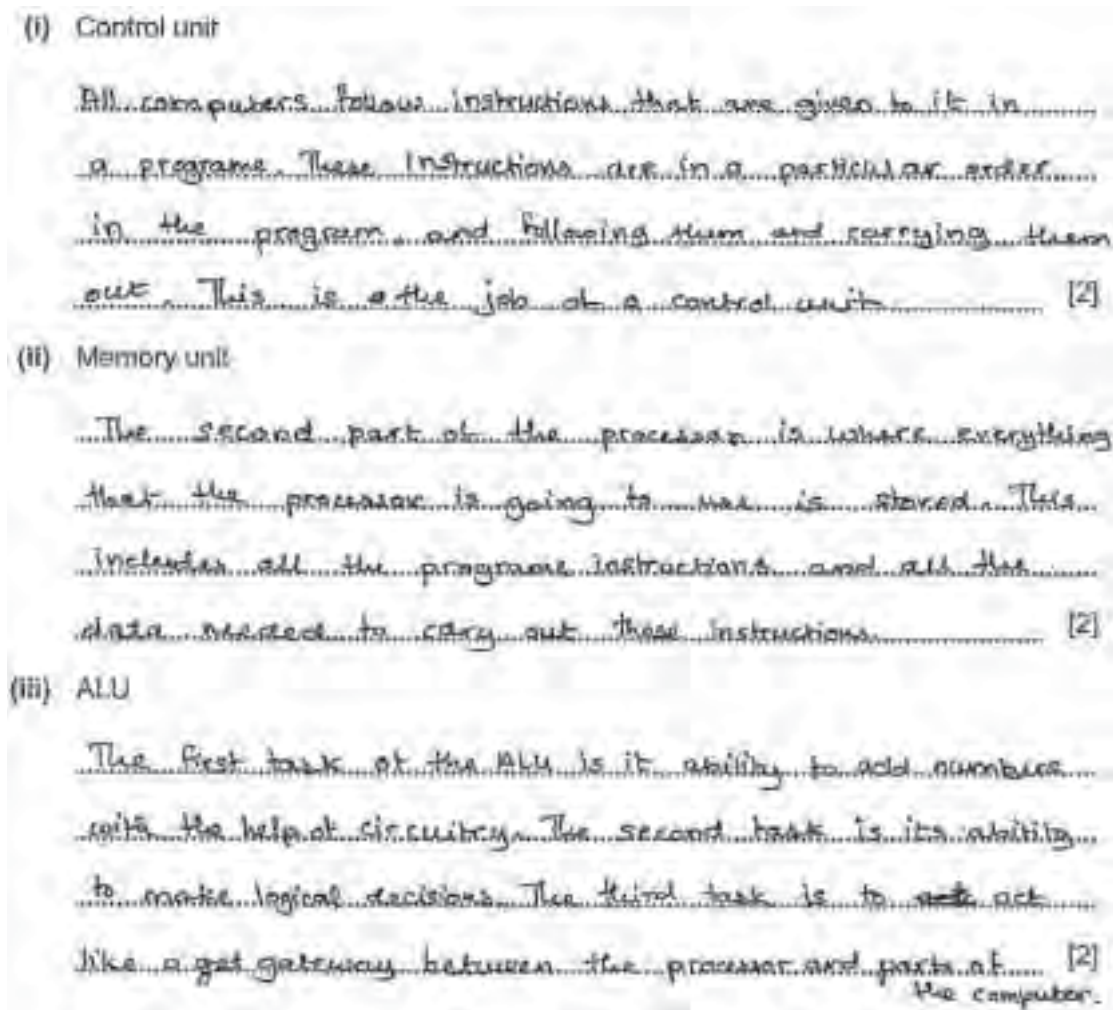 (i) Control unit
All computers follow instructions that are given to it in
a programe. These Instructions are in a particular order
in the program, and following them and carrying them
out. This is the job of a control unit [2]
(ii) Memory unit
The second part of the processor is where everything
that the processor is going to use is stored. This
includes all the programe instructions and all the
data needed to cary out these instructions. [2]
(iii) ALU
The first task of the ALU is it ability to add numbers
with the help of circuitry. The second task is its ability
to make logical decisions. The third task is to act
like a gateway between the processor and parts of [2]
the computer.